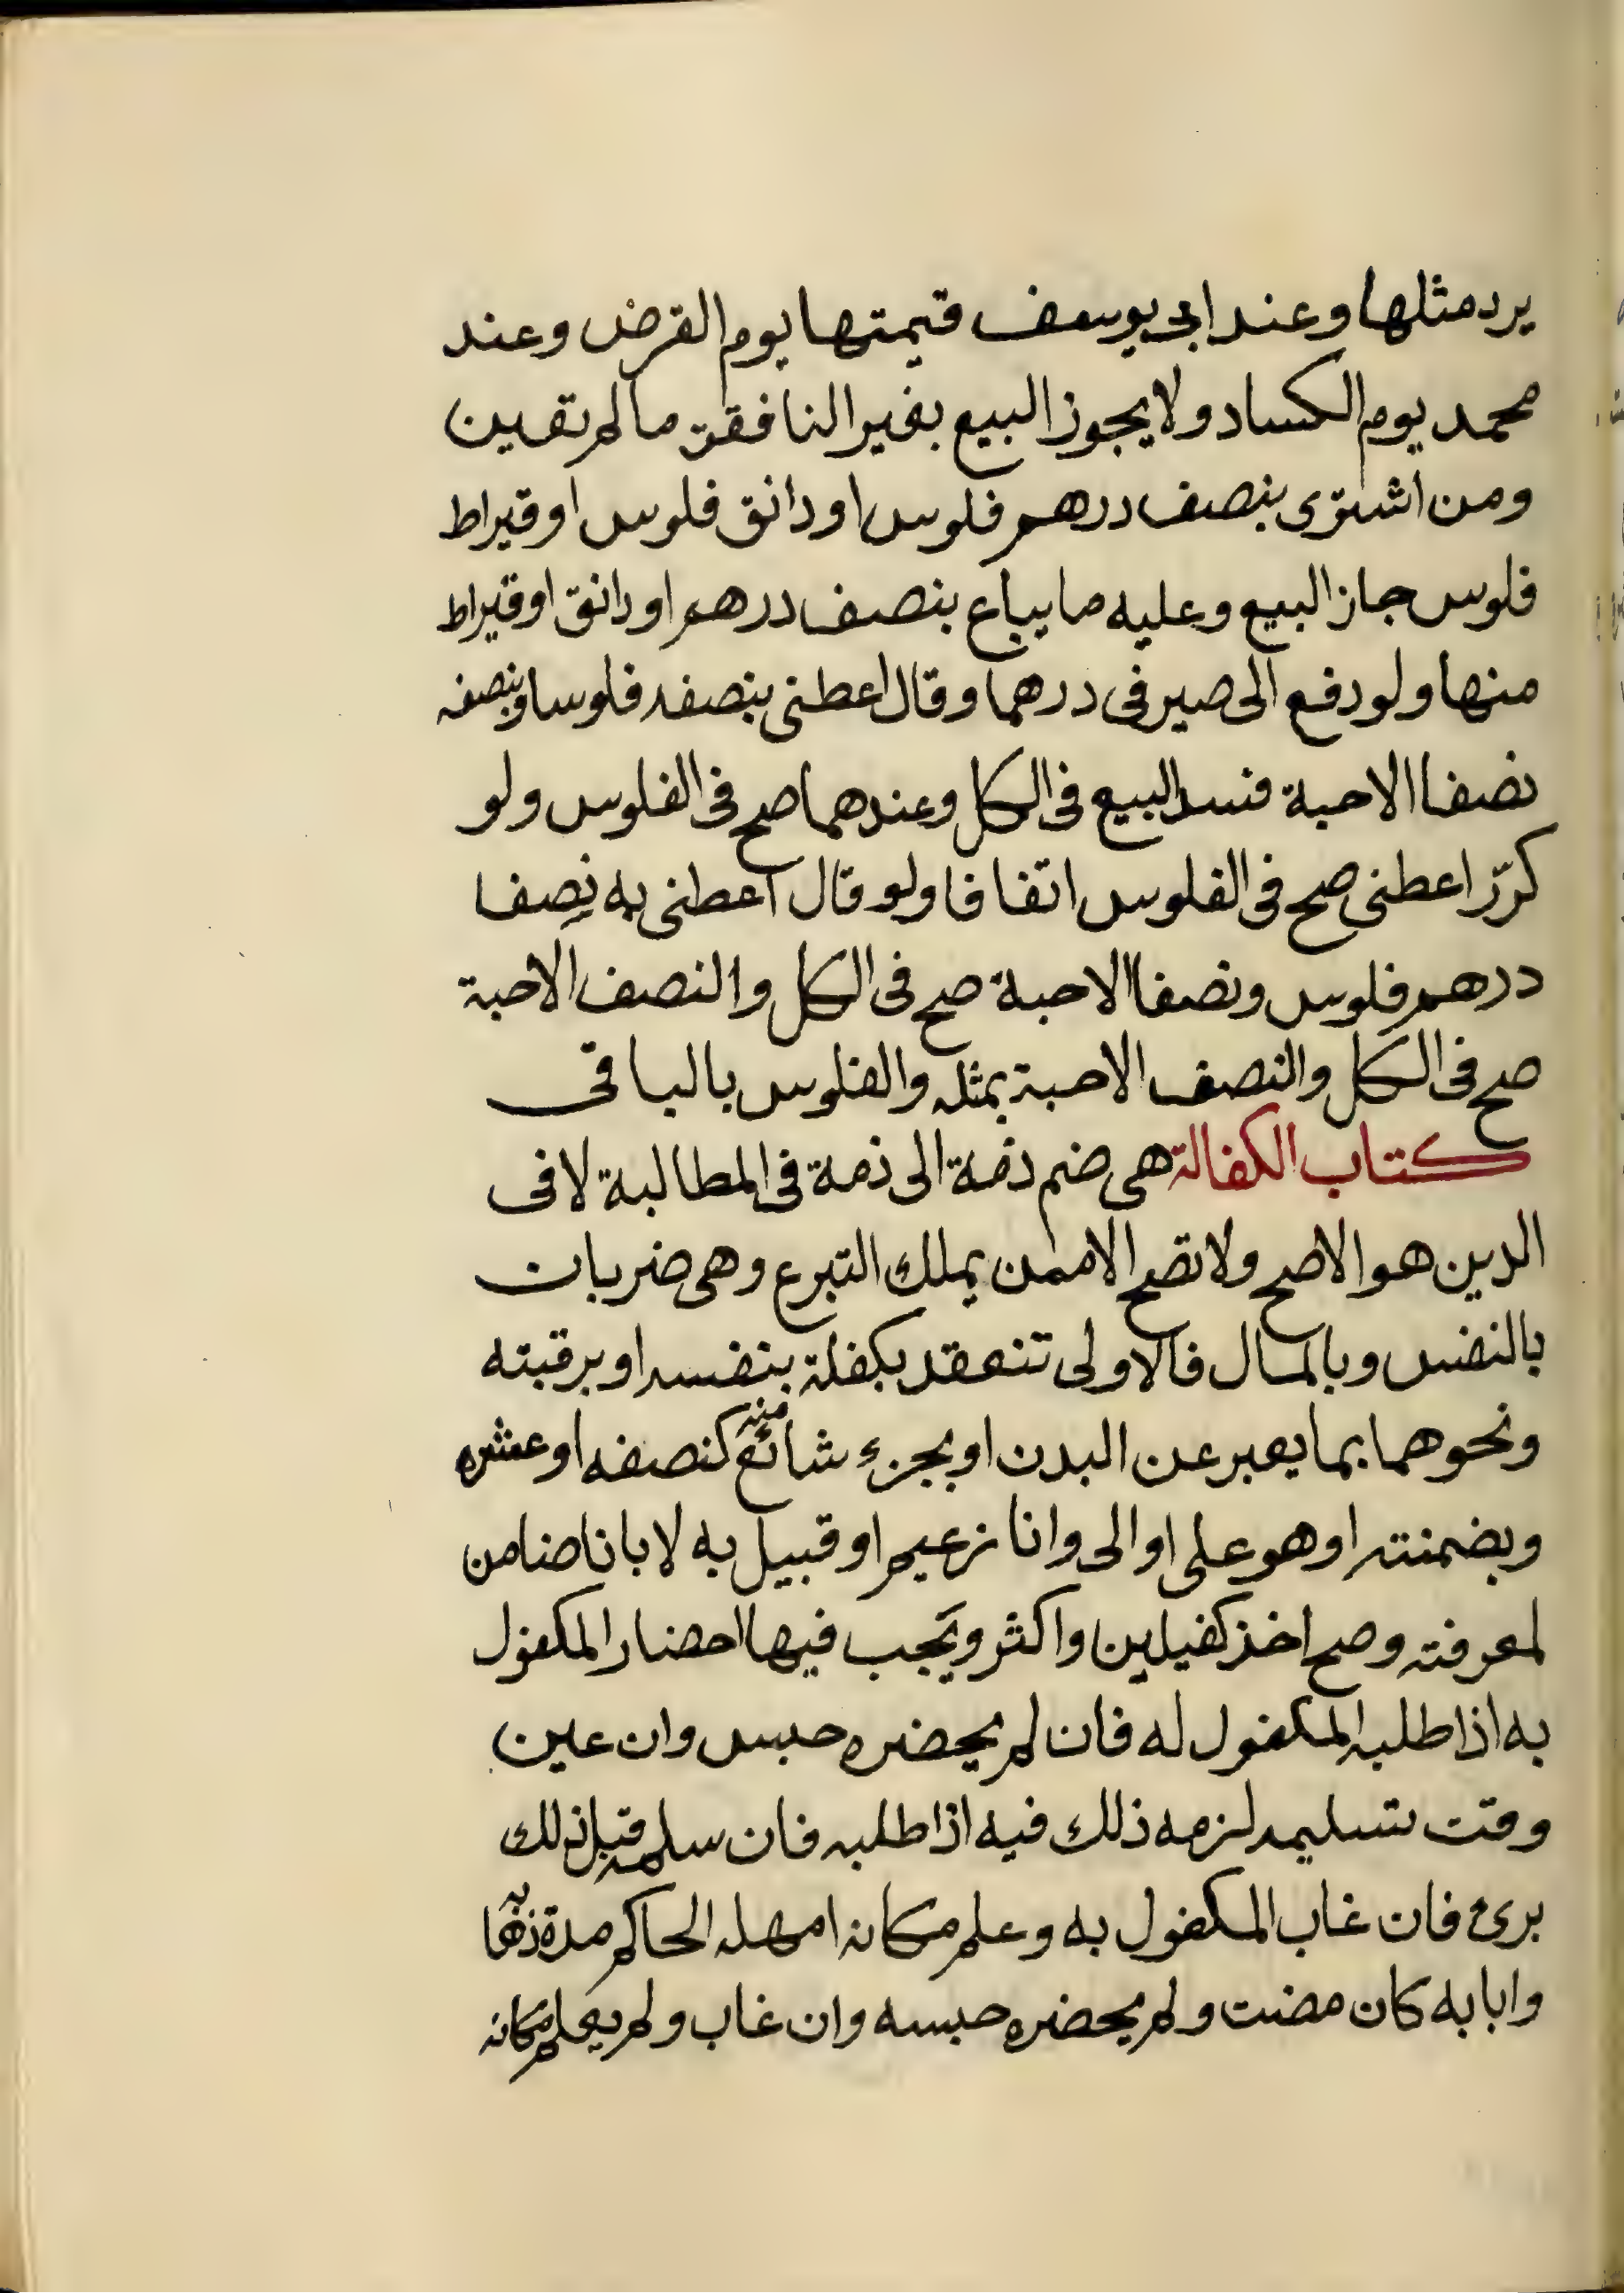 يرد مثلها وعند ابى يوسف قيمتها يوم القرض وعند
محمد يوم الكساد ولا يجوز البيع بغير النافقة ما لم تعين
ومن اشترى بنصف درهم فلوس او دانق فلوس او قيراط
فلوس جاز البيع وعليه ما يباع بنصف درهم او دانق او قيراط
منها ولو دفع الى صيرفى درهما وقال اعطنى بنصفه فلوسا وبنصفه
نصفا الاحبة فسد البيع فى الكل وعندهما صح فى الفلوس ولو
كرّر اعطنى صح فى الفلوس اتفاقا ولو قال اعطنى به نصف
درهم فلوس ونصفا الاحبة صح فى الكل والنصف الاحبة
صح فى الكل والنصف الاحبة بمثله والفلوس بالباقى
كتاب الكفالة هى ضم ذمة الى ذمة فى المطالبة لا فى
الدين هو الاصح ولا تصح الا ممن يملك التبرع وهى ضربان
بالنفس وبالمال فالاولى تنعقد بكفلة بنفسه او برقبته
ونحوهما بما يعبر عن البدن او بجزء شائع منه كنصفه او عشره
وبضمنته او هو على او الى وانا زعيم او قبيل به لا بانا ضامن
لمعرفته وصح اخذ كفيلين واكثر ويجب فيها احضار المكفول
به اذا طلبه المكفول له فان لم يحضره حبس وان عين
وقت تسليمه لزمه ذلك فيه اذا طلبه فان سلمه قبل ذلك
برئ فان غاب المكفول به وعلم مكانه امهله الحاكم مدة ذهابه
وابابه كان مضت ولم يحضره حبسه وان غاب ولم يعلم مكانه